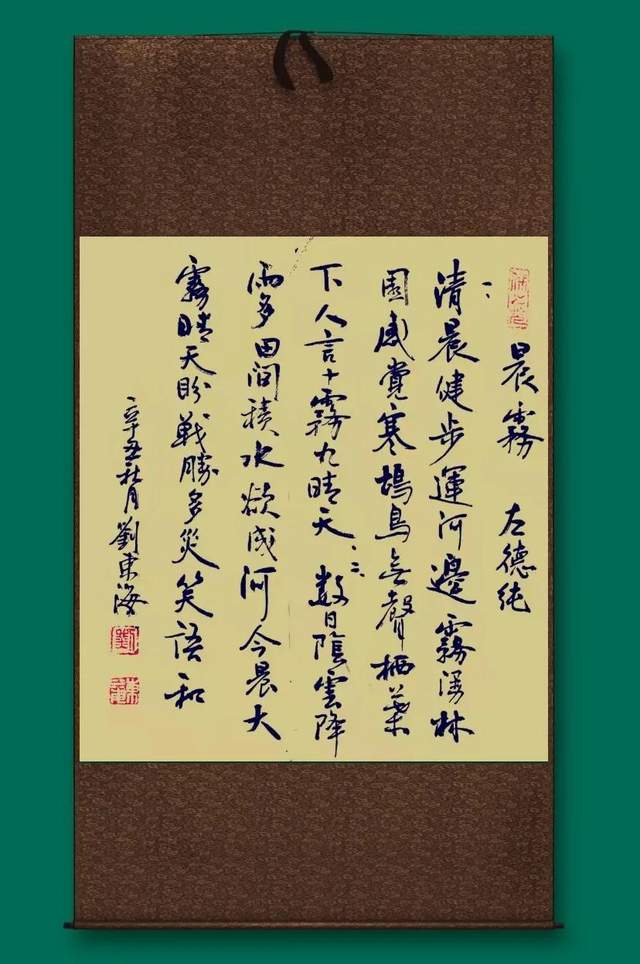 晨霧 左德純
一、清晨健步運河邊霧漫林
園感覺寒鳥无聲栖葉
下人言十霧九晴天。二、数日陰雲降
雨多田間積水欲成河今晨大
霧晴天盼戰勝多災笑語和
辛丑秋月劉東海